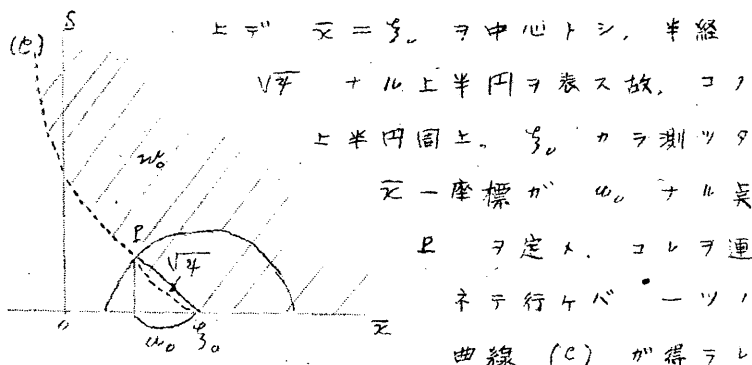 上デ x̄ = ξ₀ ヲ中心トシ、半経
√ψ ナル上半円ヲ表ス故、コノ
上半円周上、ξ₀ カラ測ツタ
x̄ー座標ガ u₀ ナル点
P ヲ定メ、コレヲ連
ネテ行ケバ一ツノ
曲線 (C) ガ得ラレ
S
(C)
w₀
P
√ψ
0
u₀
ξ₀
x̄